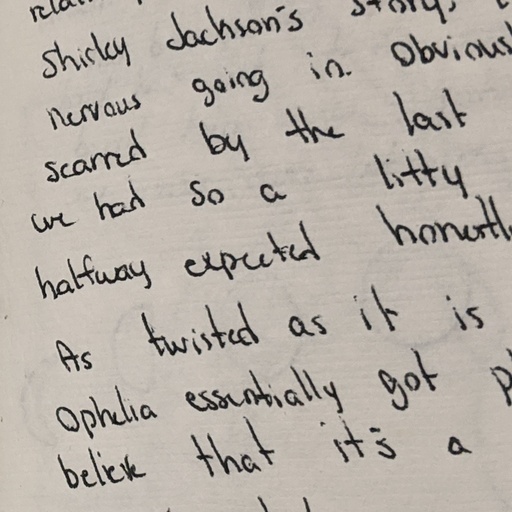 Shirley Jackson's story,
nervous going in. Obvious
scarred by the last
we had so a litty
halfway expected honestl
As twisted as it is
Ophelia essentially got p
believe that it's a